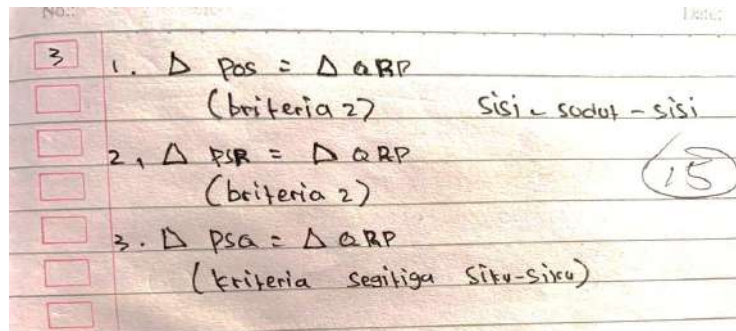 No.: Date:
3 1. △ pos = △ QRP
(briteria 2) sisi - sudut - sisi
2, △ PSR = △ QRP
(briteria 2) 15
3. △ PSQ = △ QRP
(kriteria segitiga siku-siku)